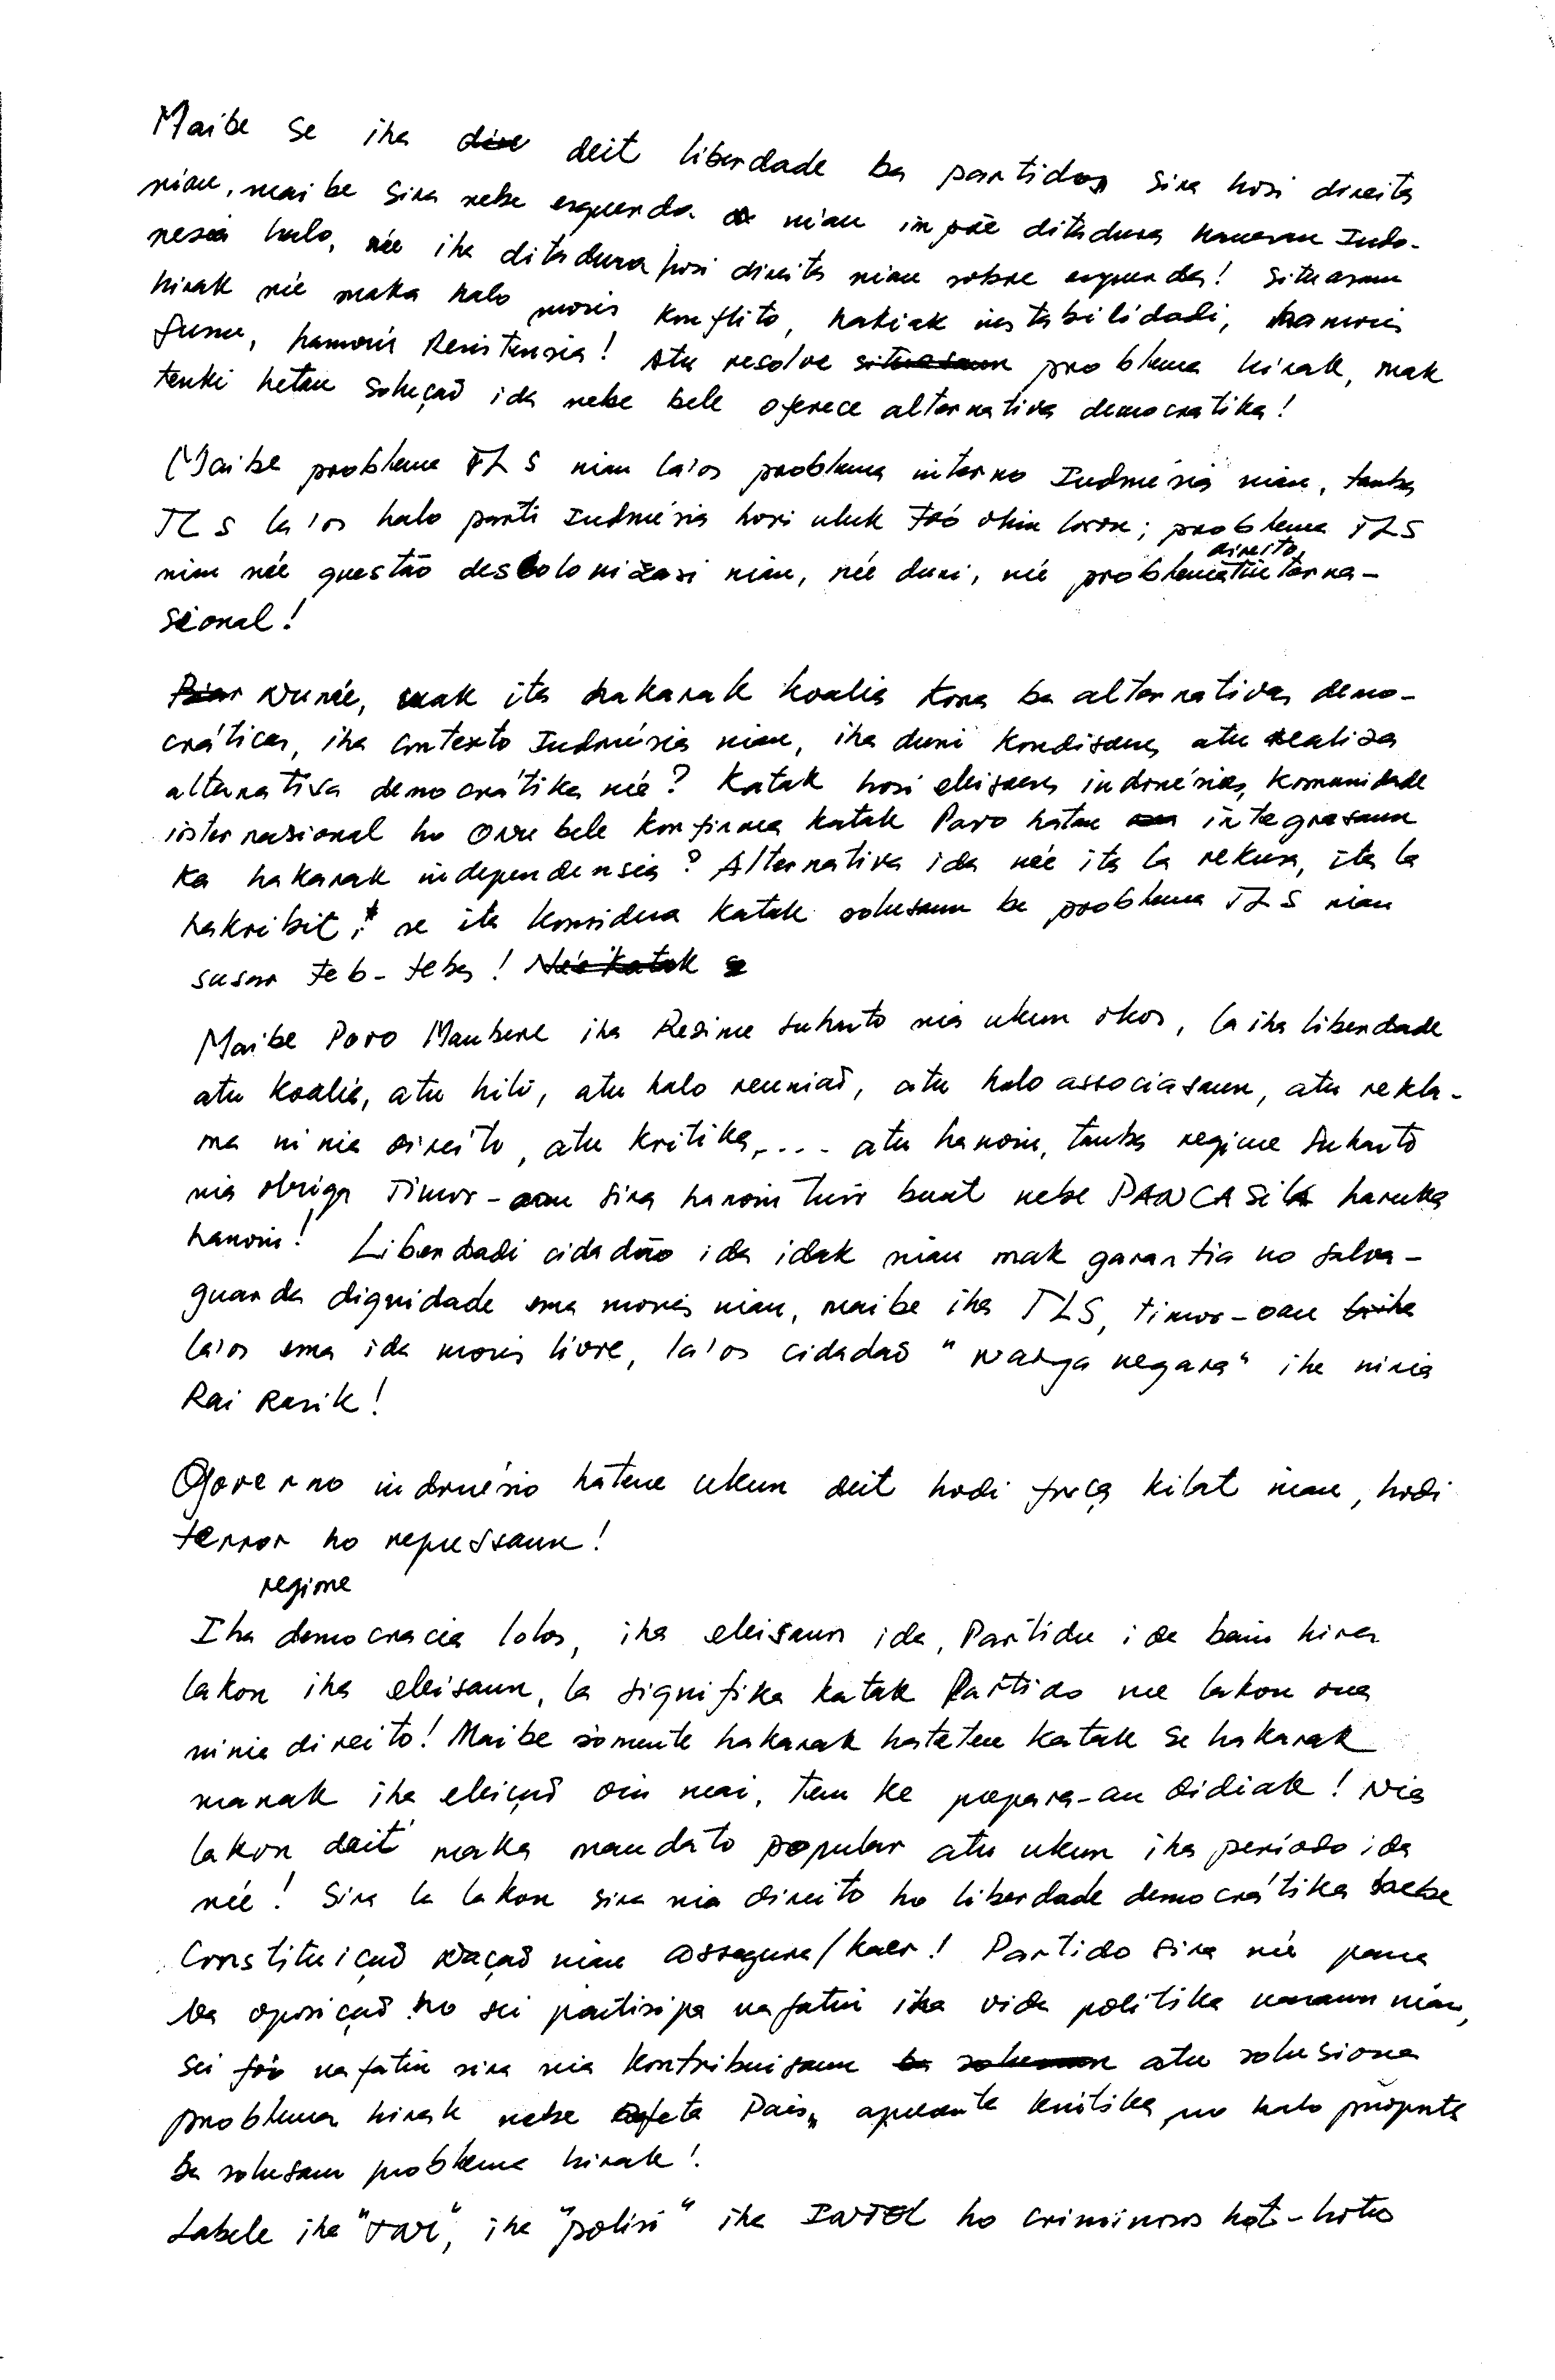 Maibe se iha deit liberdade ba partidos sira hosi direita
nian, maibe sira nebe esquerda nian impõe ditadura hanesan Indo-
nesia halo, née iha ditadura hosi direita nian sobre esquerda! Situasaun
hirak née maka halo moris konflito, hakiak instabilidadi, hamoris
funu, hamoris Resistensia! Atu resolve situasaun problema hirak, mak
tenki hetan soluçaõ ida nebe bele oferece alternativa democratika!
Maibe problema TLS nian la'os problema interno Indonésia nian, tanba
TLS la'os halo parti Indonésia hosi uluk tóo ohin loron; problema TLS
nian née questão descolonizasi nian, née duni, née problema
direito
interna-
sional!
Nunée, mak ita hakarak koalia kona ba alternativas demo-
cráticas, iha contexto Indonésia nian, iha duni kondisaun atu realiza
alternativa democrátika née? Katak hosi eleisaun indonésia, komunidade
internasional ho ONU bele konfirma katak Povo hatan integrasaun
ka hakarak independensia? Alternativa ida née ita la rekusa, ita la
hakribit, se ita konsidera katak solusaun ba problema TLS nian
susar teb-tebes! Née katak se
Maibe Povo Maubere iha Regime Suharto nia ukun okos, la iha liberdade
atu koalia, atu hili, atu halo reuniaõ, atu halo associasaun, atu rekla-
ma ni nia direito, atu kritika, ... atu hanoin, tanba regime Suharto
nia obriga Timor-oan sira hanoin tuir buat nebe PANCASILA haruka
hanoin! Liberdadi cidadão ida idak nian mak garantia no salva-
guarda dignidade ema moris nian, maibe iha TLS, timor-oan
la'os ema ida moris livre, la'os cidadaõ "warga negara" iha ninia
Rai Rasik!
O Governo indonésio hatene ukun deit hodi força kilat nian, hodi
terror ho repressaun!
regime
Iha democracia lolos, iha eleisaun ida, Partidu ida bain hira
lakon iha eleisaun, la signifika katak Partido ne lakon ona
ninia direito! Maibe sòmente hakarak hateten katak se hakarak
manak iha eleiçaõ oin mai, tem ke prepara-an didiak! Nia
lakon deit maka mandato popular atu ukun iha periodo ida
née! Sira la lakon sira nia direito ho liberdade democrátika nebe
Constituiçaõ Naçaõ nian assegura/kaer! Partido sira née pasa
ba oposiçaõ no sei partisipa nafatin iha vida politika nasaun nian,
sei fóo nafatin sira nia kontribuisaun ba solusaun atu solusiona
problema hirak nebe afeta Pais, apresenta krítika, no halo proposta
ba solusaun problema hirak!
Labele iha "TNI", iha "polisi" iha INTEL ho criminosos hotu-hotu